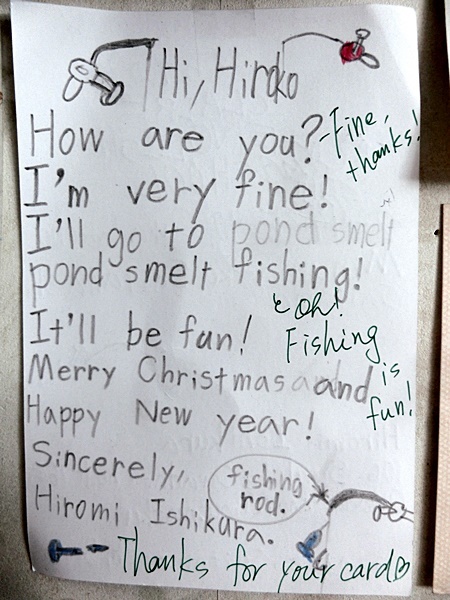 Hi, Hiroko
How are you?
-Fine, thanks!
I'm very fine!
I'll go to pond smelt
pond smelt fishing!
It'll be fun!
oh! Fishing is fun!
Merry Christmas and
Happy New year!
Sincerely,
Hiromi Ishikura.
fishing rod.
Thanks for your card♡